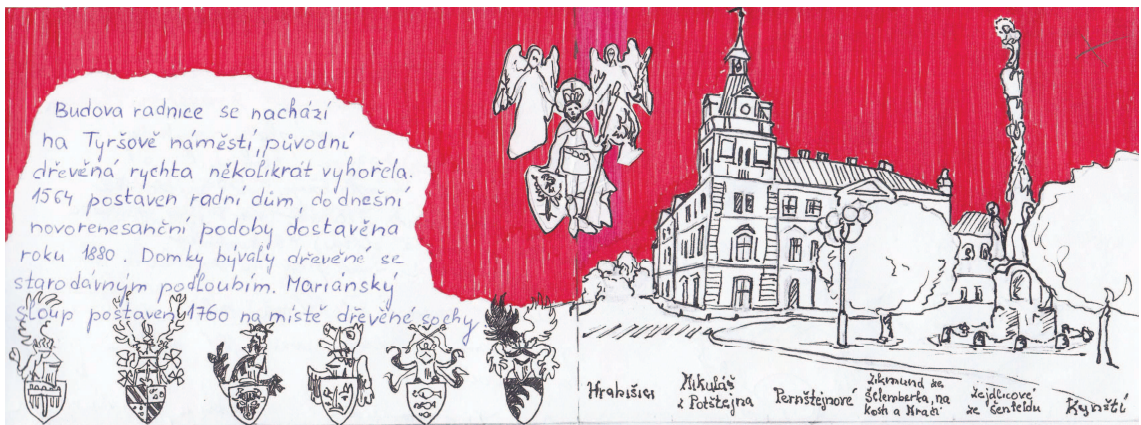 Budova radnice se nachází
na Tyršově náměstí, původní
dřevěná rychta několikrát vyhořela.
1564 postaven radní dům, do dnešní
novorenesanční podoby dostavěna
roku 1880. Domky bývaly dřevěné se
starodávným podloubím. Mariánský
sloup postaven 1760 na místě dřevěné sochy
Hrabišici
Mikuláš
z Potštejna
Pernštejnové
Zikmund ze
Šelemberka, na
Kosti a
Zejdlicové
ze Šenfeldu
Kynští